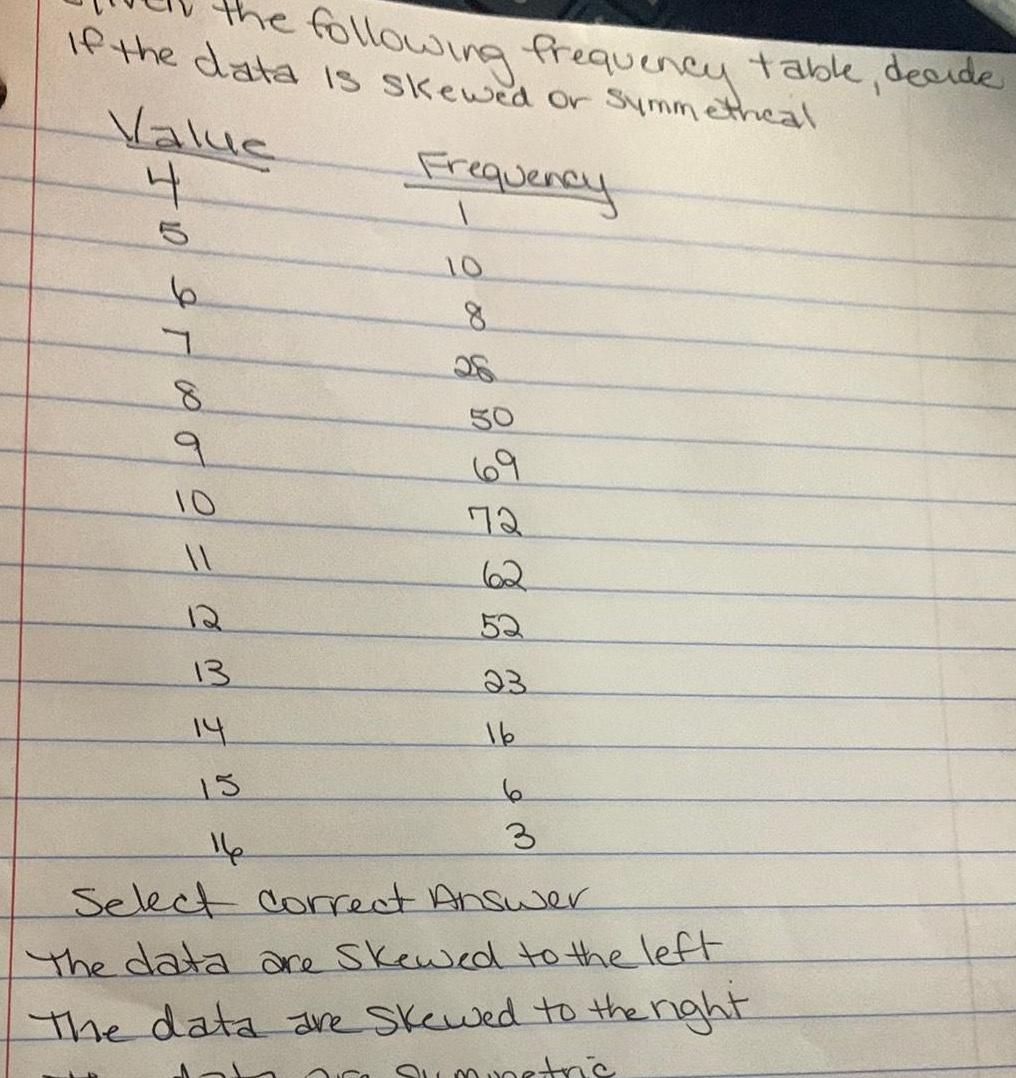 the following frequency table, decide
If the data is skewed or symmetrical
Value Frequency
4 1
5 10
6 8
7 28
8 50
9 69
10 72
11 62
12 52
13 23
14 16
15 6
16 3
Select correct Answer
The data are skewed to the left
The data are skewed to the right
data are symmetric